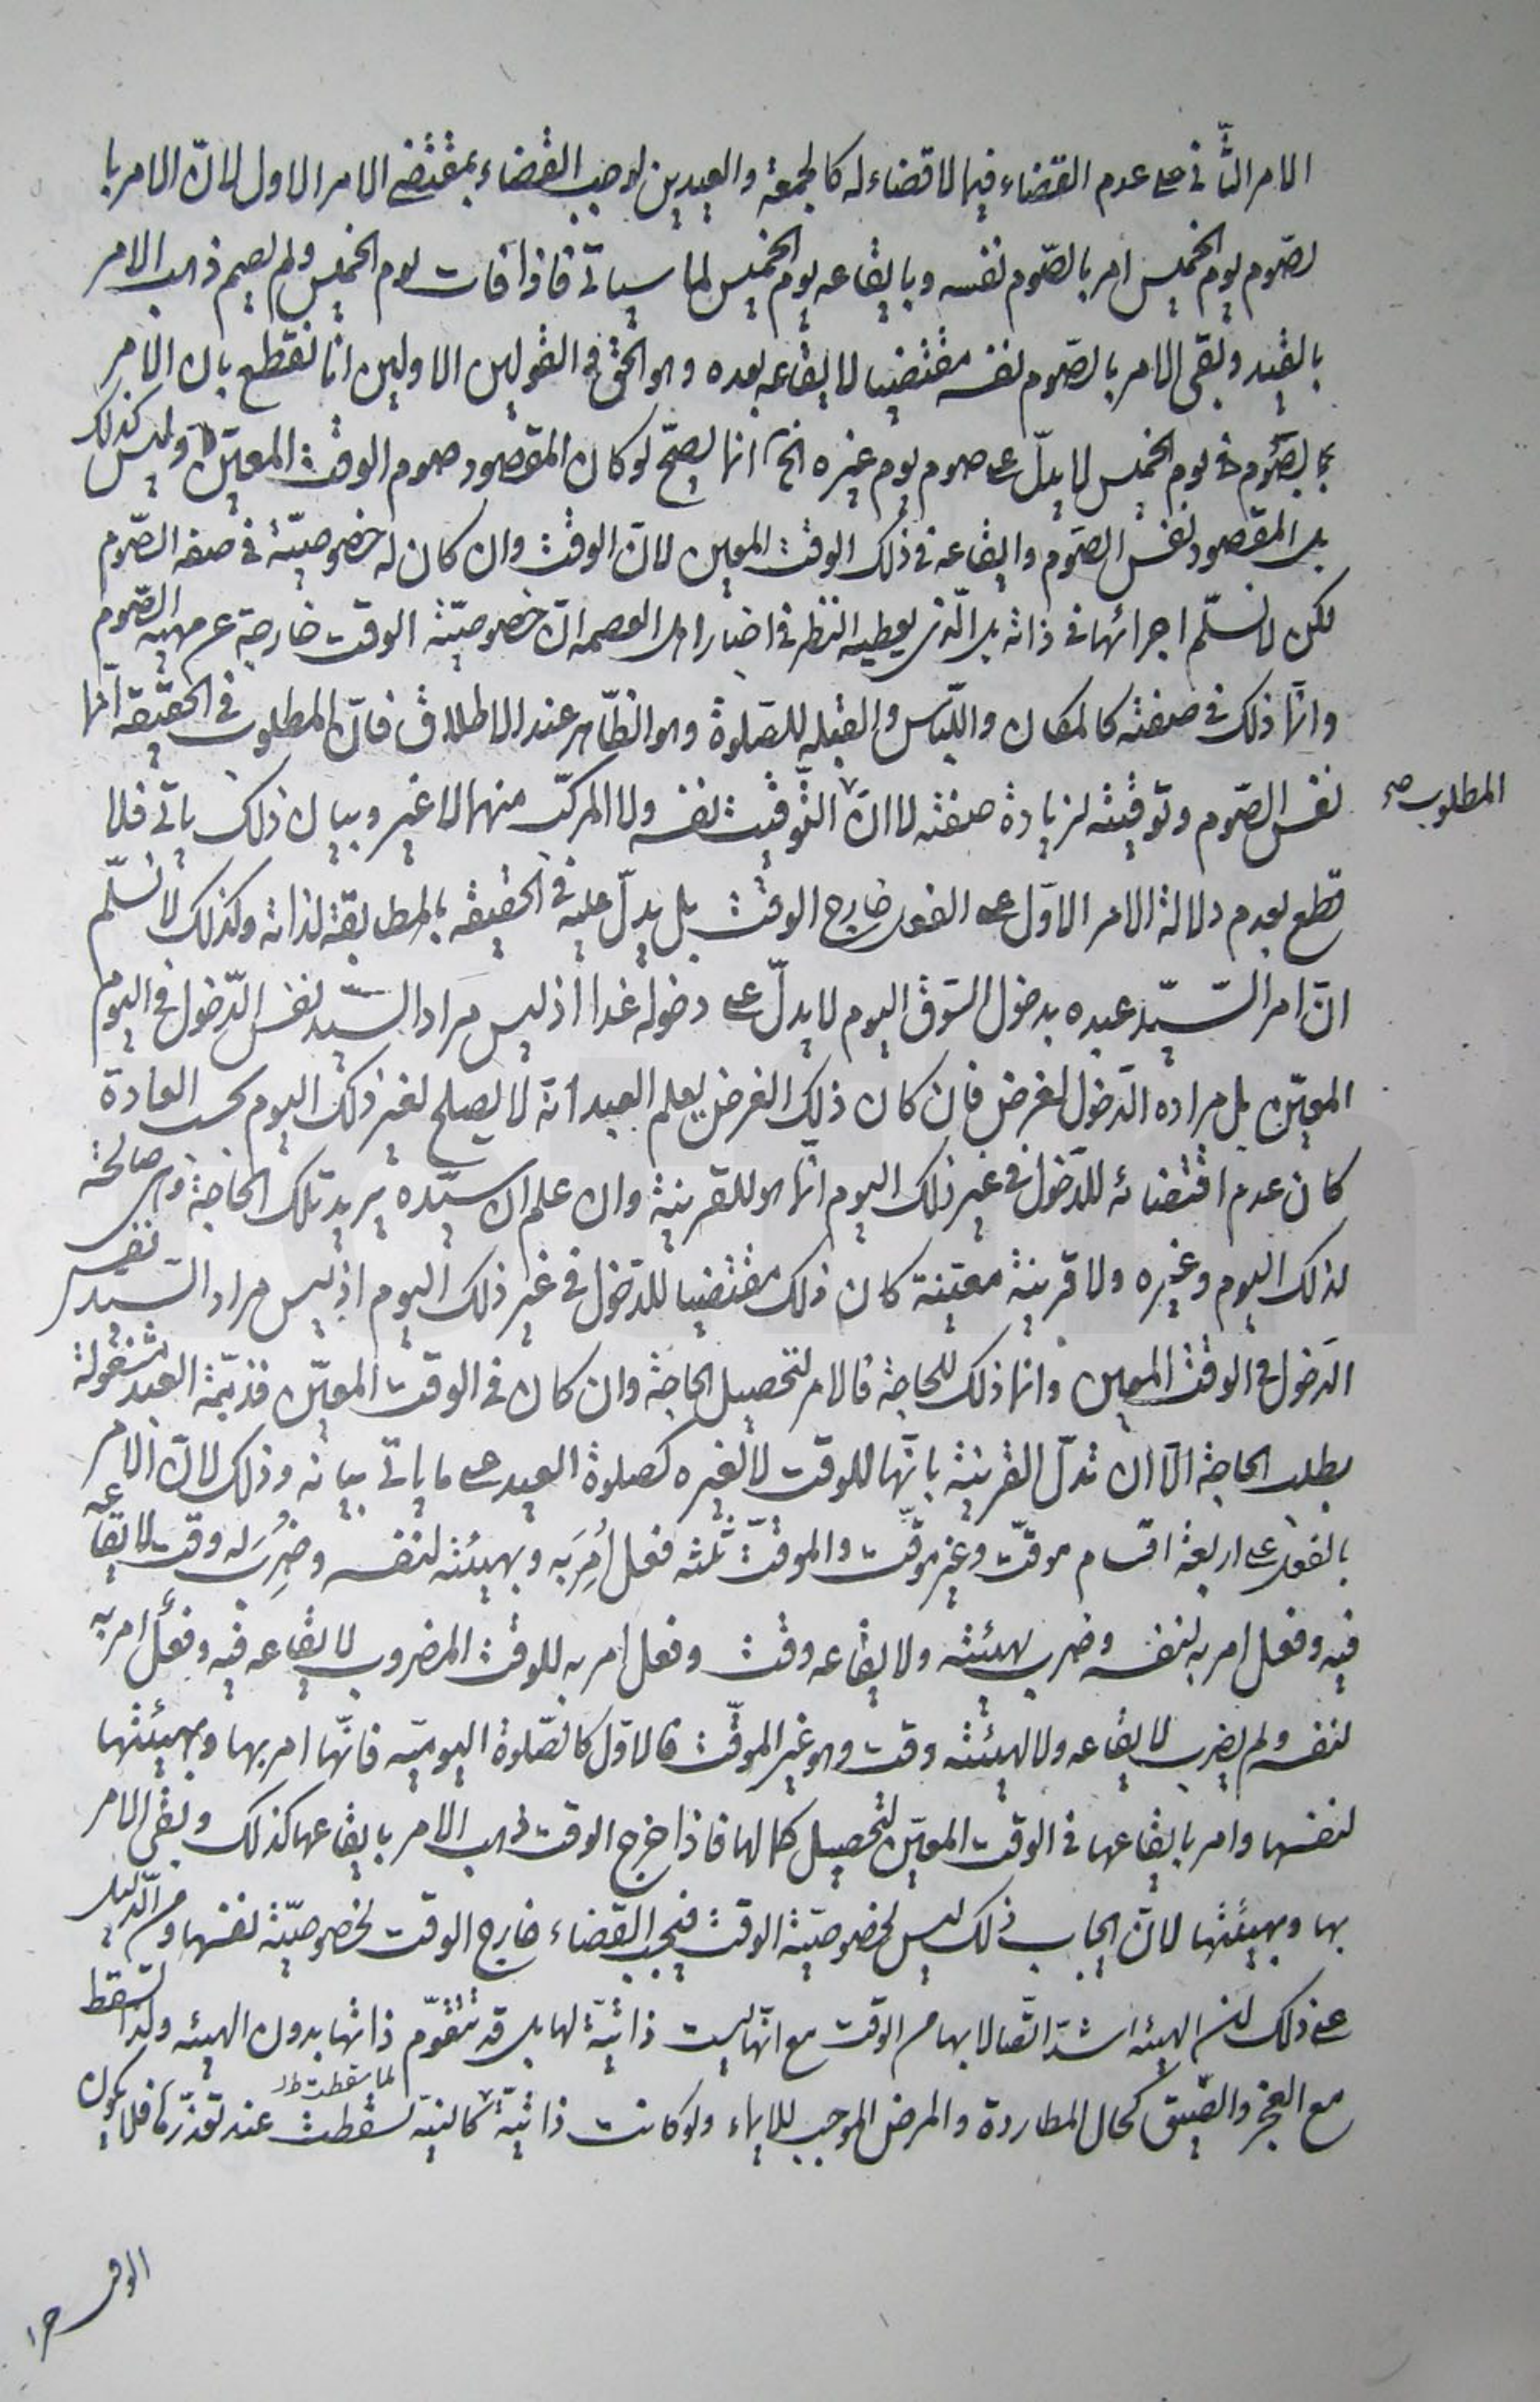 الامر الثّانى على عدم القضاء فيما لا قضاء له كالجمعة والعيدين لوجب القضاء بمقتضى الامر الاول لانّ الامر با
لصّوم يوم الخميس امر بالصّوم نفسه وبايقاعه يوم الخميس لما سياتى فاذا فات يوم الخميس ولم يصم ذهب الامر
بالقيد وبقى الامر بالصّوم نفسه مقتضيا لايقاعه بعده وهو الحق فى القولين الاولين انا نقطع بان الامر
بالصّوم فى يوم الخميس لا يدلّ على صوم يوم غيره الخ انما يصحّ لو كان المقصود صوم الوقت المعيّن وليس كذلك
بل المقصود نفس الصّوم وايقاعه فى ذلك الوقت المعين لانّ الوقت وان كان له خصوصيّة فى صفة الصّوم
لكن لا نسلّم اجرائها فى ذاته بل الّذى يعطيه النظر فى اخبار اهل العصمه انّ خصوصيّة الوقت خارجة عن مهية الصّوم
وانّما ذلك فى صفته كالمكان واللّباس والقبله للصّلوة وهو الظّاهر عند الاطلاق فانّ المطلوب فى الحقيقه انّما
نفس الصّوم وتوقيته لزيادة صفته لا انّ التّوقيت نفسه ولا المركّب منهما لا غير وبيان ذلك ياتى فلا
المطلوب صح
قطع بعدم دلالة الامر الاوّل على الفعل خارج الوقت بل يدلّ عليه فى الحقيقه بالمطابقة لذاته وكذلك لا نسلّم
انّ امر السّيّد عبده بدخول السّوق اليوم لا يدلّ على دخوله غدا اذ ليس مراد السّيد نفس الدّخول فى اليوم
المعيّن بل مراده الدّخول لغرض فان كان ذلك الغرض يعلم العبد انّه لا يصلح لغير ذلك اليوم بحسب العادة
كان عدم اقتضائه للدّخول فى غير ذلك اليوم انّما هو للقرينة وان علم ان سيّده يريد تلك الحاجة وهى صالحة
لذلك اليوم وغيره ولا قرينة معيّنة كان ذلك مقتضيا للدّخول فى غير ذلك اليوم اذ ليس مراد السّيد نفس
الدّخول فى الوقت المعين وانما ذلك للحاجة فالامر لتحصيل الحاجة وان كان فى الوقت المعيّن فذمّة العبد مشغولة
بطلب الحاجة الّا ان تدلّ القرينة بانّها للوقت لا لغيره كصلوة العيد على ما ياتى بيانه وذلك لانّ الامر
بالفعل على اربعة اقسام موقّت وغير موقّت والموقّت ثلثه فعل اُمِرَ به وبهيئته لنفسه وضُرِبَ له وقت لايقاعه
فيه وفعل امر به لنفسه وضرب لهيئته ولايقاعه وقت وفعل امر به للوقت المضروب لايقاعه فيه وفعل امر به
لنفسه ولم يضرب لايقاعه ولا لهيئته وقت وهو غير الموقّت فالاوّل كالصّلوة اليوميّه فانّها امر بها وبهيئتها
لنفسها وامر بايقاعها فى الوقت المعيّن لتحصيل كمالها فاذا خرج الوقت ذهب الامر بايقاعها كذلك وبقى الامر
بها وبهيئتها لانّ ايجاب ذلك ليس لخصوصيّة الوقت فيجب القضاء خارج الوقت لخصوصيّة نفسها ومن الدّليل
على ذلك انّ الهيئه اشدّ اتّصالا بها من الوقت مع انّها ليست ذاتيّة لها بل قد تتقوّم ذاتها بدون الهيئه ولذا تسقط
مع العجز والضّيق كحال المطاردة والمرض الموجب للايماء ولو كانت ذاتيّة كالنيّة لسقطت عند تعذّرها فلا يكون
لما سقطت ظ
الوقت